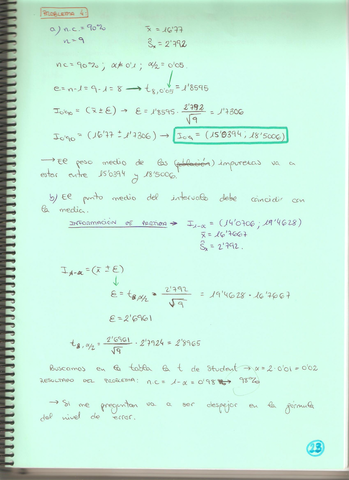 PROBLEMA 4
a) n.c. = 90% x̄ = 16'77
n = 9 Ŝx = 2'792
n.c = 90% ; α = 0'1 ; α/2 = 0'05
e = n-1 = 9-1 = 8 → t8,0'05 = 1'8595
I0'90 = (x̄ ± E) → E = 1'8595 · 2'792/√9 = 1'7306
I0'90 = (16'77 ± 1'7306) → I0'9 = (15'0394 ; 18'5006)
→ El peso medio de las impurezas va a
estar entre 15'0394 y 18'5006.
b) El punto medio del intervalo debe coincidir con
la media.
INFORMACIÓN DE PARTIDA → I1-α = (14'0706 ; 19'4628)
x̄ = 16'7667
Ŝx = 2'792.
I1-α = (x̄ ± E)
E = t8,α/2 · 2'792/√9 = 19'4628 - 16'7667
E = 2'6961
t8,α/2 = 2'6961/√9 · 2'7924 = 2'8965
Buscamos en la tabla la t de Student → α = 2·0'01 = 0'02
RESULTADO DEL PROBLEMA: n.c = 1-α = 0'98 → 98%
→ Si me preguntan va a ser despejar en la fórmula
del nivel de error.
23